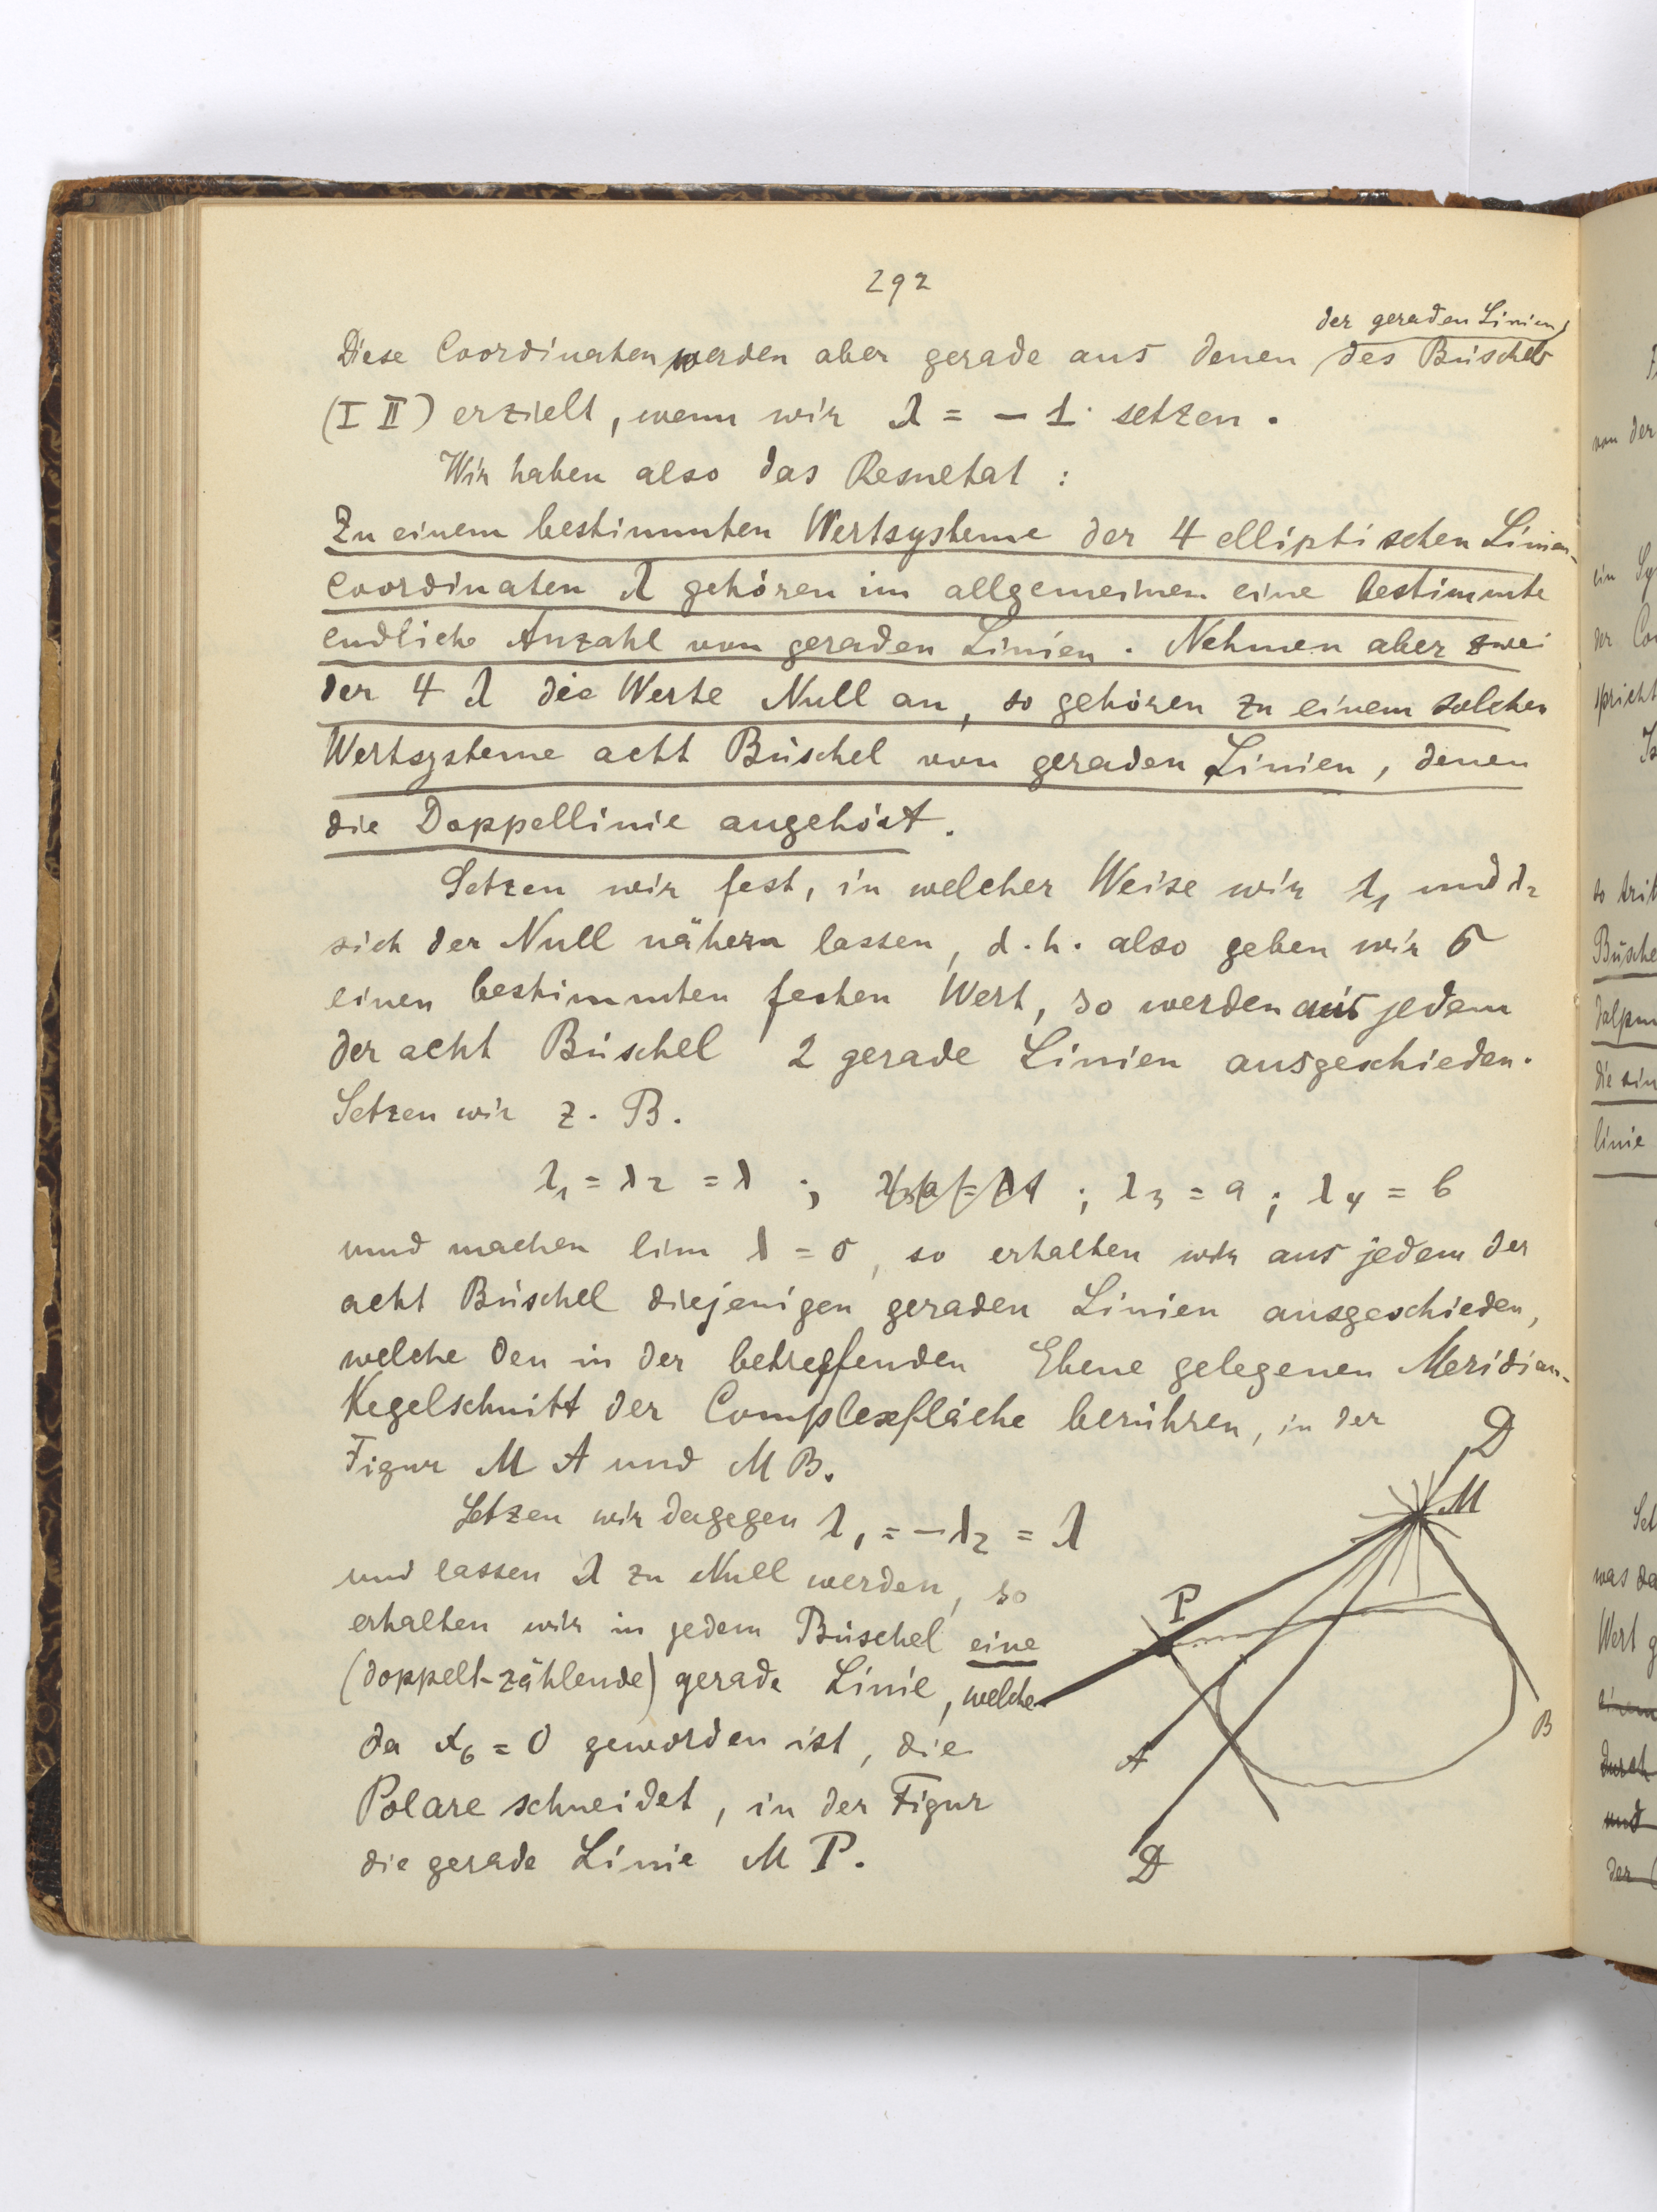 292
der geraden Linien
Diese Coordinaten werden aber gerade aus denen des Büschels
(I II) erzielt, wenn wir λ = - 1 setzen.
Wir haben also das Resultat :
Zu einem bestimmten Wertsysteme der 4 elliptischen Linien-
coordinaten λ gehören im allgemeinen eine bestimmte
endliche Anzahl von geraden Linien. Nehmen aber zwei
der 4 λ die Werte Null an, so gehören zu einem solchen
Wertsysteme acht Büschel von geraden Linien, denen
die Doppellinie angehört.
Setzen wir fest, in welcher Weise wir λ₁ und λ₂
sich der Null nähern lassen, d.h. also geben wir σ
einen bestimmten festen Wert, so werden aus jedem
der acht Büschel 2 gerade Linien ausgeschieden.
Setzen wir z. B.
λ₁ = λ₂ = λ ; ; λ₃ = a ; λ₄ = b
und machen lim λ = 0, so erhalten wir aus jedem der
acht Büschel diejenigen geraden Linien ausgeschieden,
welche den in der betreffenden Ebene gelegenen Meridian-
Kegelschnitt der Complexfläche berühren, in der
Figur M A und M B.
Setzen wir dagegen λ₁ = -λ₂ = λ
und lassen λ zu Null werden, so
erhalten wir in jedem Büschel eine
(doppelt-zählende) gerade Linie, welche
da x₆ = 0 geworden ist, die
Polare schneidet, in der Figur
die gerade Linie M P.
D
M
P
B
A
D
von der
ein
der
spricht
so
die
linie
was da
Wert
durch
und
der